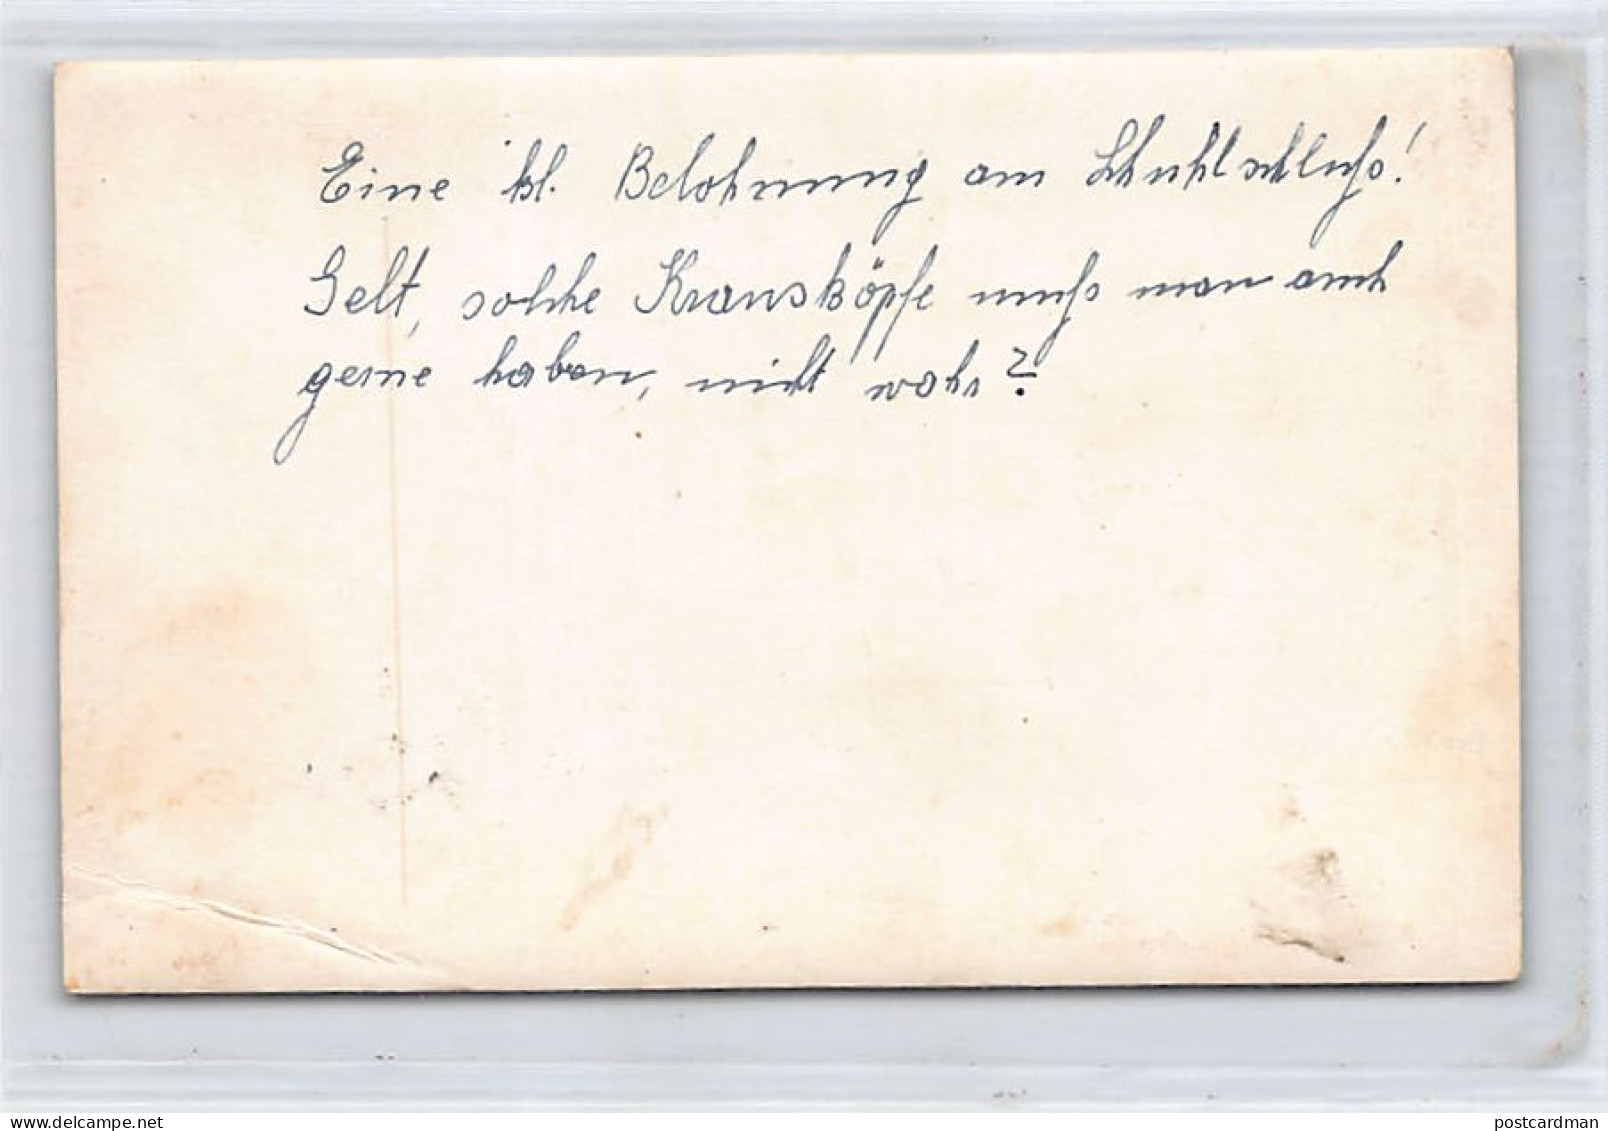 Eine kl. Belohnung am Schuhlschluß!
Gelt, solche Krausköpfe muß man auch
gerne haben, nicht wahr?
postcardman
© delcampe.net